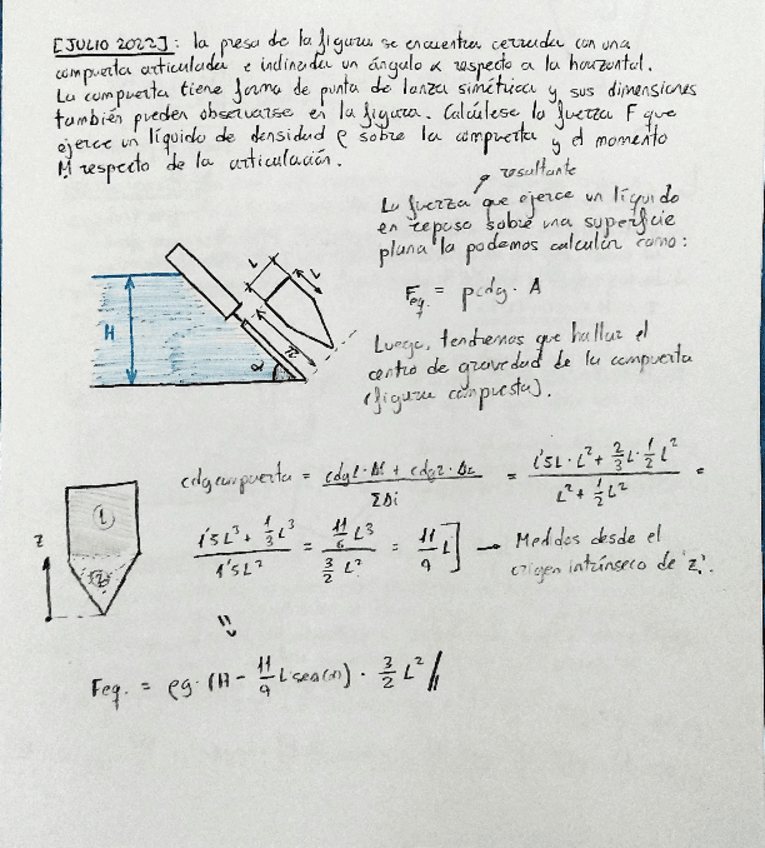 [JULIO 2022]: la presa de la figura se encuentra cerrada con una
compuerta articulada e inclinada un ángulo α respecto a la horizontal.
La compuerta tiene forma de punta de lanza simétrica y sus dimensiones
también pueden observarse en la figura. Calcúlese la fuerza F que
ejerce un líquido de densidad ρ sobre la compuerta y el momento
M respecto de la articulación.
resultante
La fuerza que ejerce un líquido
en reposo sobre una superficie
plana la podemos calcular como:
Feq. = pcdg · A
Luego, tendremos que hallar el
centro de gravedad de la compuerta
(figura compuesta).
L
L
H
2L
α
cdgcompuerta = (cdg1·A1 + cdg2·A2)/(ΣAi) = (1'5L · L² + 2/3 L · 1/2 L²)/(L² + 1/2 L²) =
(1'5L³ + 1/3 L³)/(1'5L²) = (11/6 L³)/(3/2 L²) = 11/9 L] → Medidos desde el
origen intrínseco de 'z'.
z
1
2
Feq. = ρg · (H - 11/9 L sen(α)) · 3/2 L² //